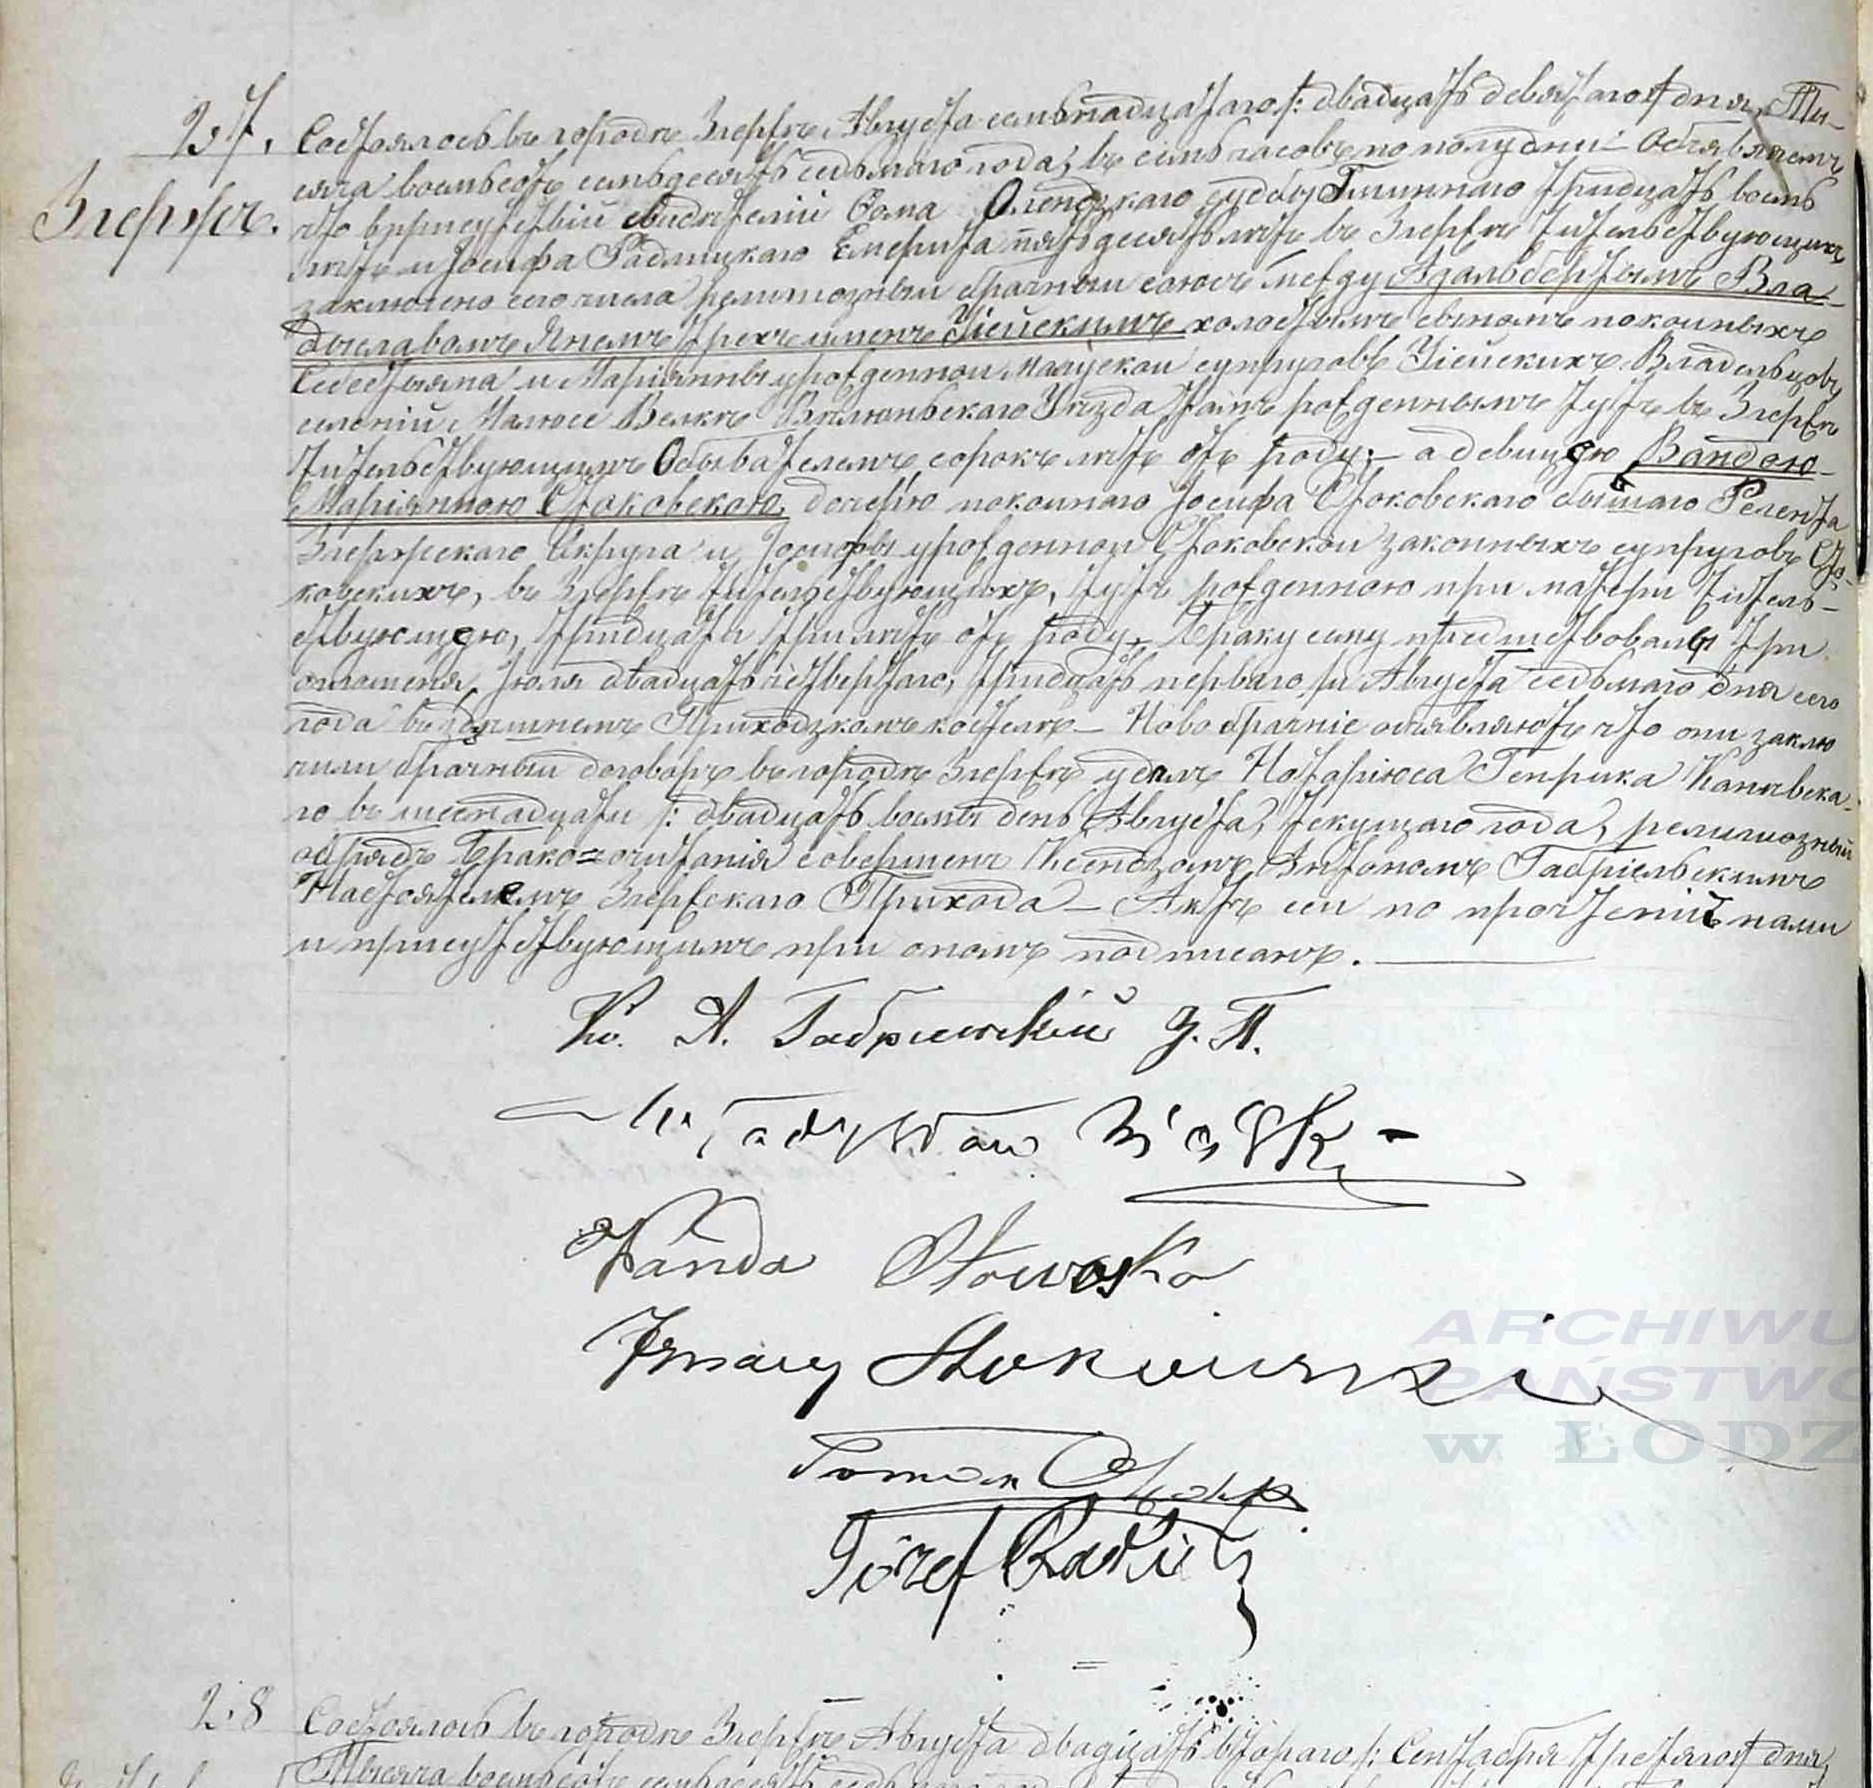 27.
Згержъ.
Состоялось въ городѣ Згержѣ Августа семьнадцатаго /: двадцать девятаго :/ дня, Ты-
сяча восемьсотъ семьдесятъ седьмаго года, въ семь часовъ по полудни – Объявляемъ
что въ присутствіи свидѣтелій Сома Олендзкаго судьи Гминнаго тридцать восемь
лѣтъ и Іосифа Радлицкаго Емерита пятьдесятъ лѣтъ въ Згержѣ жительствующихъ
заключено сего числа религіозный брачный союзъ между Адальбертымъ Вла-
дыславомъ Яномъ трехъ именъ холостымъ сыномъ покойныхъ
Себестыяна и Маріянны урожденной супруговъ Владельцовъ
селеній Велке Вѣлюньскаго Уѣзда тамъ рожденнымъ тутъ въ Згержѣ
жительствующимъ Обывателемъ сорокъ лѣтъ отъ роду; – а девицею Вандою
Маріянною Стоковскою, дочерію покойнаго Іосифа Стоковскаго бывшаго Реента
Згержскаго Округа и Іосифы урожденной Стоковской законныхъ супруговъ Сто-
ковскихъ, въ Згержѣ жительствующихъ, тутъ рожденною при матери житель-
ствующею, тридцати три лѣтъ отъ роду. – Браку сему предшествовалы три
оглашенія, Іюля двадцать четвертаго, тридцать перваго и Августа седьмаго дня сего
года въ здѣшнемъ Приходзкомъ костелѣ – Новобрачніе объявляютъ что они заклю
чили брачный договоръ въ городѣ Згержѣ удѣлъ Нотаріюса Генрика
го въ шеснадцати /: двадцать восмы день Августа, текущаго года, религіозный
обрядъ Брако=сочитанія совершенъ Ксендзомъ Антономъ Габріельскимъ
Настоятелемъ Згержскаго Прихода – Актъ сей по прочтеніи нами
и присутствующимъ при ономъ подписанъ.
Кс. А. Габріельскій З. П.
Władysław
Wanda Stokowska
Ignacy Stokowski
Tomasz
Józef Radlicki
ARCHIWU
PAŃSTWO
w ŁODZ
28
Состоялось въ городѣ Згержѣ Августа двадцать втораго /: Сентября третяго :/ дня,
Тысяча восемьсотъ семьдесятъ